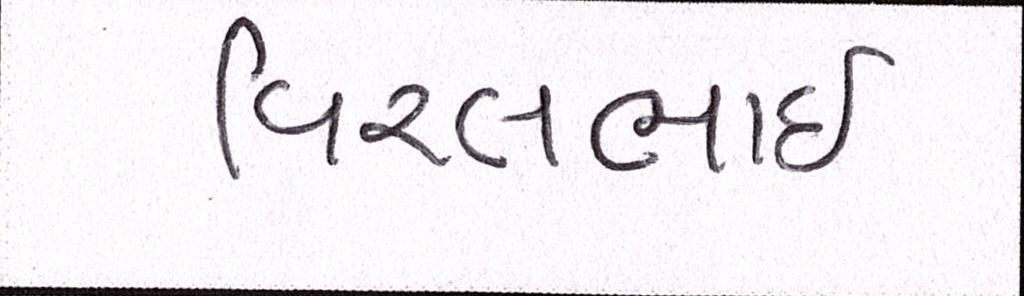 વિરલભાઈ